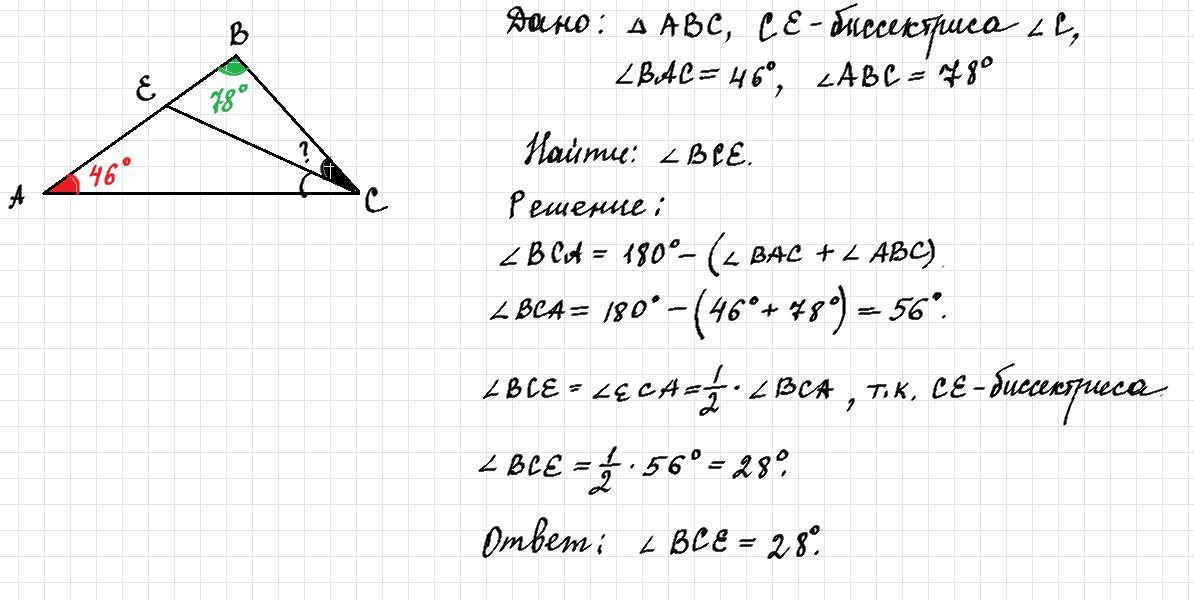 B
E
78°
46°
?
A
C
Дано: △ABC, CE-биссектриса ∠C,
∠BAC = 46°, ∠ABC = 78°
Найти: ∠BCE.
Решение:
∠BCA = 180° - (∠BAC + ∠ABC)
∠BCA = 180° - (46° + 78°) = 56°.
∠BCE = ∠ECA = 1/2 · ∠BCA, т.к. CE-биссектриса
∠BCE = 1/2 · 56° = 28°.
Ответ: ∠BCE = 28°.